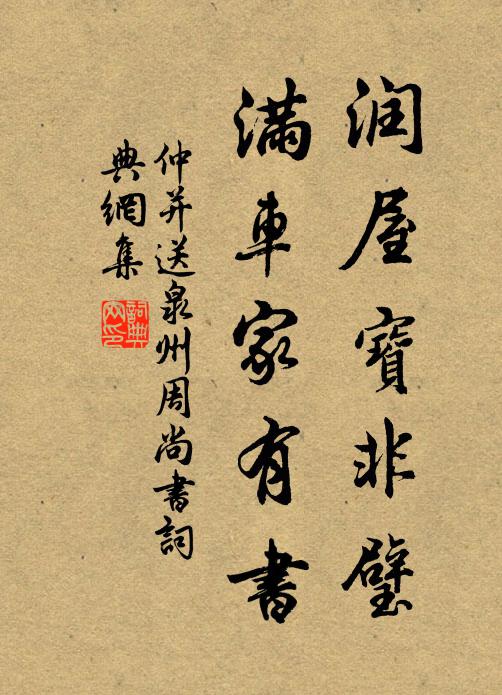 润屋寶非璧
滿車家有書
仲并送泉州周尚書詞
典網集
詞典
网印